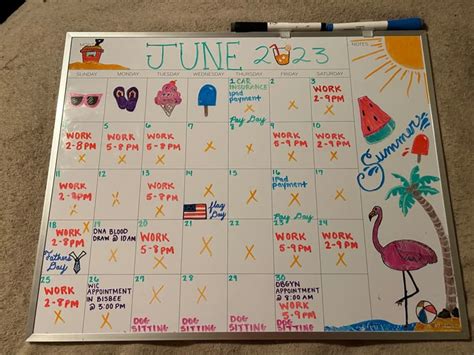 JUNE 2023
NOTES
SUNDAY MONDAY TUESDAY WEDNESDAY THURSDAY FRIDAY SATURDAY
1 CAR
INSURANCE
ipad
payment
Pay Day
2
3
WORK
2-9PM
4
WORK
2-8PM
5
WORK
5-8PM
6
WORK
5-8PM
7
8
9
WORK
5-9PM
10
WORK
2-9PM
11
WORK
2-8PM
12
13
WORK
5-8PM
14
Flag
Day
15
16
Ipad
payment
Pay Day
17
WORK
2-9PM
18
WORK
2-8PM
Father's
Day
19
DNA BLOOD
DRAW @ 10AM
20
WORK
5-8PM
21
22
23
WORK
5-9PM
24
WORK
2-9PM
25
WORK
2-8PM
26
WIC
APPOINTMENT
IN BISBEE
@ 3:00PM
27
DOG
SITTING
28
DOG
SITTING
29
DOG
SITTING
30
OBGYN
APPOINTMENT
@ 8:00 AM
WORK
5-9PM
DOG
SITTING
Summer